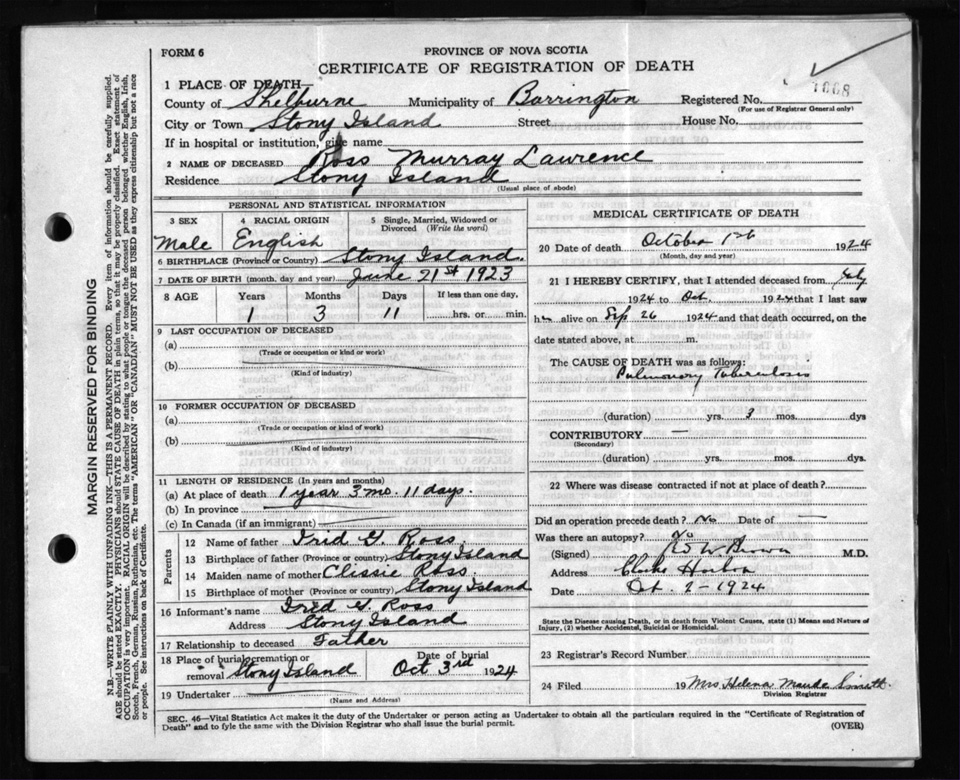 FORM 6
PROVINCE OF NOVA SCOTIA
CERTIFICATE OF REGISTRATION OF DEATH
1068
1 PLACE OF DEATH—
County of Shelburne Municipality of Barrington Registered No.
(For use of Registrar General only)
City or Town Stony Island Street House No.
If in hospital or institution, give name
2 NAME OF DECEASED Ross Murray Lawrence
Residence Stony Island
(Usual place of abode)
PERSONAL AND STATISTICAL INFORMATION
3 SEX 4 RACIAL ORIGIN 5 Single, Married, Widowed or Divorced (Write the word)
Male English
6 BIRTHPLACE (Province or Country) Stony Island.
7 DATE OF BIRTH (month, day and year) June 21st 1923
8 AGE Years Months Days If less than one day,
1 3 11 hrs. or min.
9 LAST OCCUPATION OF DECEASED
(a)
(Trade or occupation or kind or work)
(b)
(Kind of industry)
10 FORMER OCCUPATION OF DECEASED
(a)
(Trade or occupation or kind of work)
(b)
(Kind of industry)
11 LENGTH OF RESIDENCE (In years and months)
(a) At place of death 1 year 3 mo. 11 days.
(b) In province
(c) In Canada (if an immigrant)
Parents
12 Name of father Fred G. Ross.
13 Birthplace of father (Province or country) Stony Island
14 Maiden name of mother Clissie Ross.
15 Birthplace of mother (Province or country) Stony Island
16 Informant's name Fred G. Ross
Address Stony Island
17 Relationship to deceased Father
18 Place of burial, cremation or removal Stony Island Date of burial Oct 3rd 1924
19 Undertaker
(Name and Address)
MEDICAL CERTIFICATE OF DEATH
20 Date of death October 1st 1924
(Month, day and year)
21 I HEREBY CERTIFY, that I attended deceased from July
1924 to Oct. 1924 that I last saw
h alive on Sep 26 1924 and that death occurred, on the
date stated above, at m.
The CAUSE OF DEATH was as follows:
Pulmonary Tuberculosis
(duration) yrs. 3 mos. dys
CONTRIBUTORY —
(Secondary)
(duration) yrs. mos. dys
22 Where was disease contracted if not at place of death?
Did an operation precede death? No Date of —
Was there an autopsy? No
(Signed) Brown M.D.
Address Clarks Harbor
Date Oct. 2-1924
State the Disease causing Death, or in death from Violent Causes, state (1) Means and Nature of
Injury, (2) whether Accidental, Suicidal or Homicidal.
23 Registrar's Record Number
24 Filed 19 Mrs Helena Maude Smith.
Division Registrar
SEC. 46—Vital Statistics Act makes it the duty of the Undertaker or person acting as Undertaker to obtain all the particulars required in the "Certificate of Registration of
Death" and to fyle the same with the Division Registrar who shall issue the burial permit.
(OVER)
MARGIN RESERVED FOR BINDING
N.B.—WRITE PLAINLY WITH UNFADING INK—THIS IS A PERMANENT RECORD. Every item of information should be carefully supplied.
AGE should be stated EXACTLY. PHYSICIANS should STATE CAUSE OF DEATH in plain terms, so that it may be properly classified. Exact statement of
OCCUPATION is very important. RACIAL ORIGIN will be described by stating to what people or tongue the deceased person belonged whether English, Irish,
Scotch, French, German, Russian, Ruthenian, etc. The terms "AMERICAN" OR "CANADIAN" MUST NOT BE USED as they express citizenship but not a race
or people. See instructions on back of Certificate.